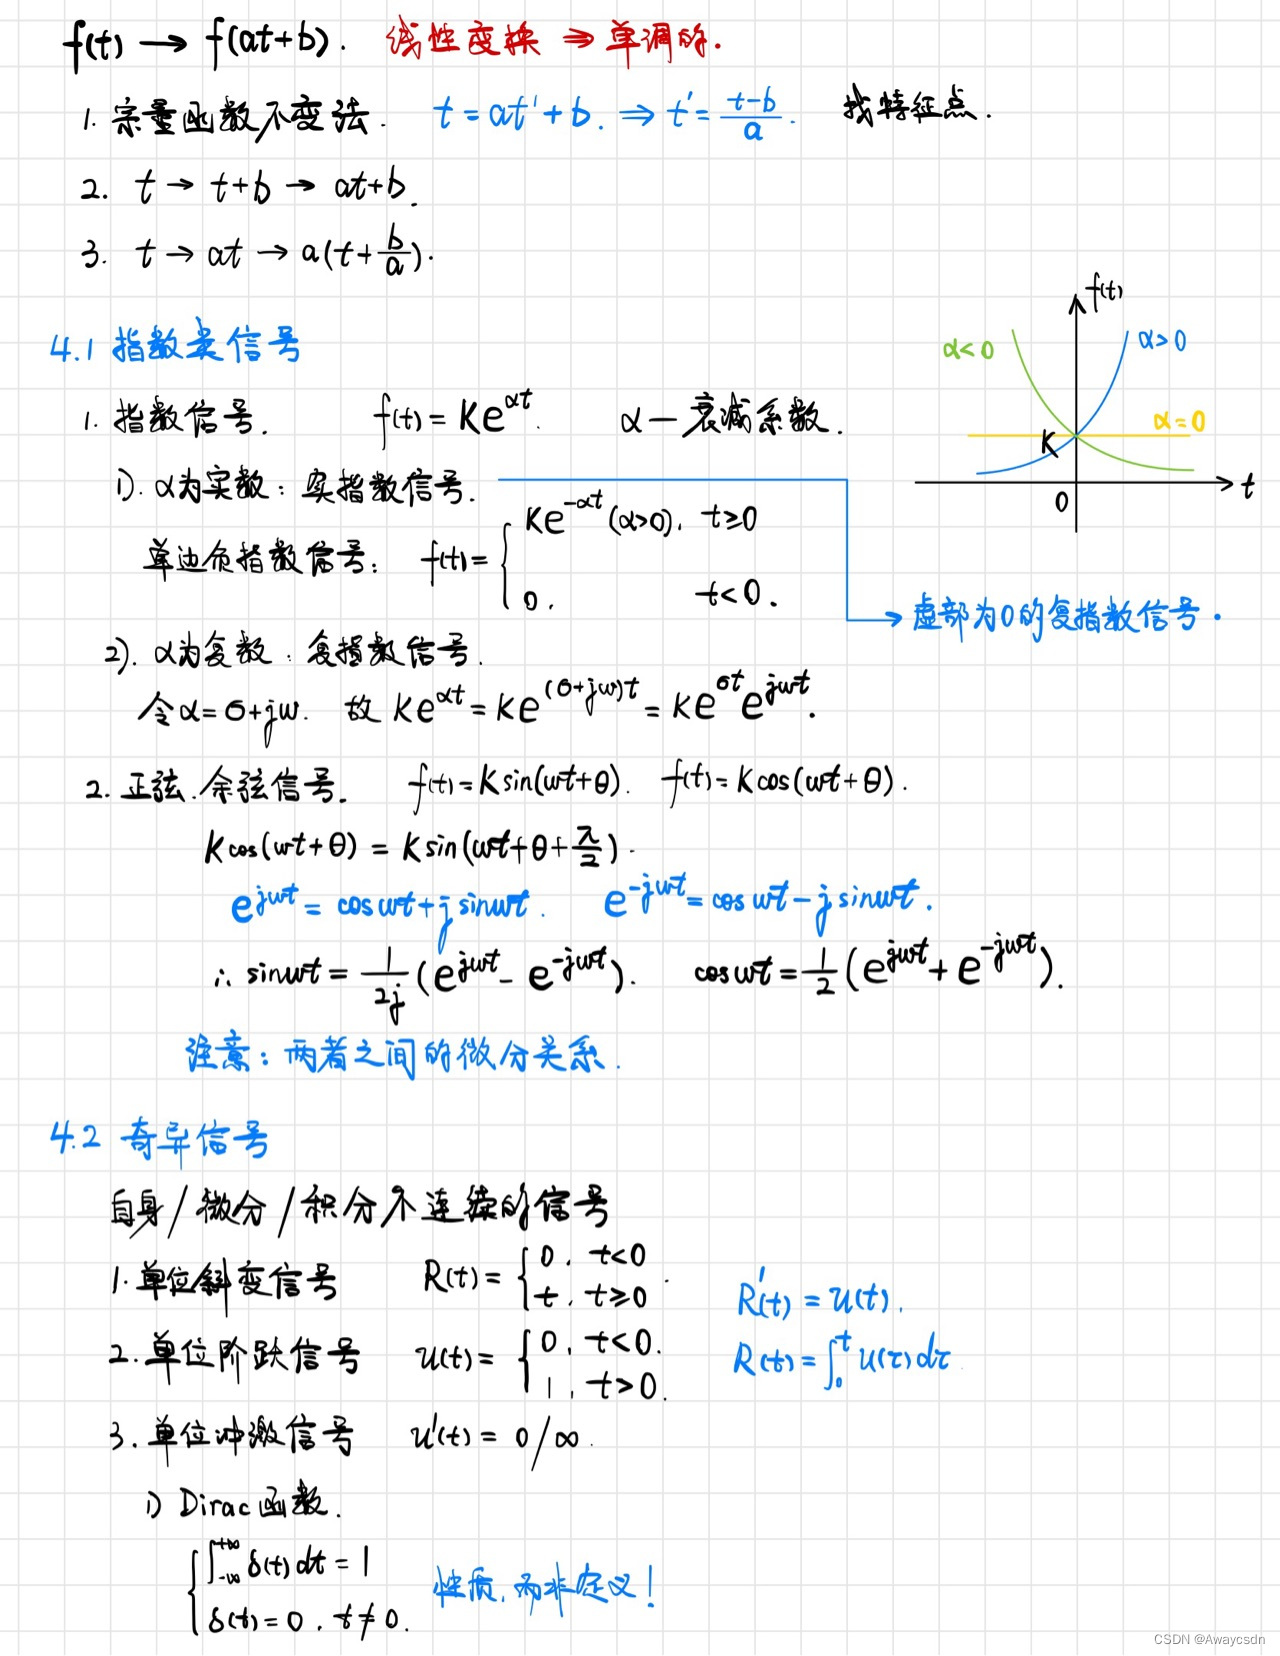 f(t) → f(at+b). 线性变换 ⇒ 单调的.
1. 宗量函数不变法. t = at' + b. ⇒ t' = (t-b)/a. 找特征点.
2. t → t+b → at+b.
3. t → at → a(t+b/a).
f(t)
α<0
α>0
α=0
K
0
t
4.1 指数类信号
1. 指数信号. f(t) = Ke^{αt}. α — 衰减系数.
1). α为实数: 实指数信号.
→ 虚部为0的复指数信号.
单边负指数信号: f(t) = { Ke^{-αt} (α>0), t≥0
0, t<0.
2). α为复数: 复指数信号.
令α=σ+jω. 故 Ke^{αt} = Ke^{(σ+jω)t} = Ke^{σt}e^{jωt}.
2. 正弦.余弦信号. f(t)=Ksin(ωt+θ). f(t)=Kcos(ωt+θ).
Kcos(ωt+θ) = Ksin(ωt+θ+π/2).
e^{jωt} = cosωt+jsinωt. e^{-jωt} = cosωt-jsinωt.
∴ sinωt = 1/2j (e^{jωt} - e^{-jωt}). cosωt = 1/2 (e^{jωt} + e^{-jωt}).
注意: 两者之间的微分关系.
4.2 奇异信号
自身/微分/积分不连续的信号
1. 单位斜变信号 R(t) = { 0, t<0
t, t≥0.
R'(t) = u(t).
2. 单位阶跃信号 u(t) = { 0, t<0.
1, t>0.
R(t) = ∫_0^t u(τ)dτ
3. 单位冲激信号 u'(t) = 0/∞.
1) Dirac函数.
{ ∫_{-∞}^{+∞} δ(t)dt = 1
δ(t)=0, t≠0.
性质,而非定义!
CSDN @Awaycsdn